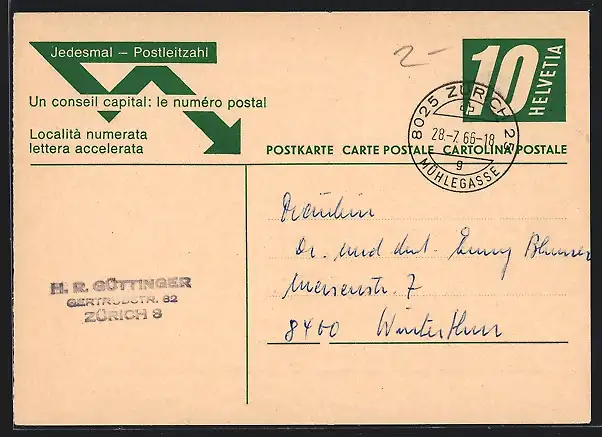 Jedesmal – Postleitzahl
Un conseil capital: le numéro postal
Località numerata
lettera accelerata
2-
10
HELVETIA
8025 ZÜRICH 25
28.-7. 66-18
g
MÜHLEGASSE
POSTKARTE CARTE POSTALE CARTOLINA POSTALE
H. R. GÜTTINGER
GERTRUDSTR. 82
ZÜRICH 8
Fräulein
Dr. med. dent. Emmy
7
8400 Winterthur